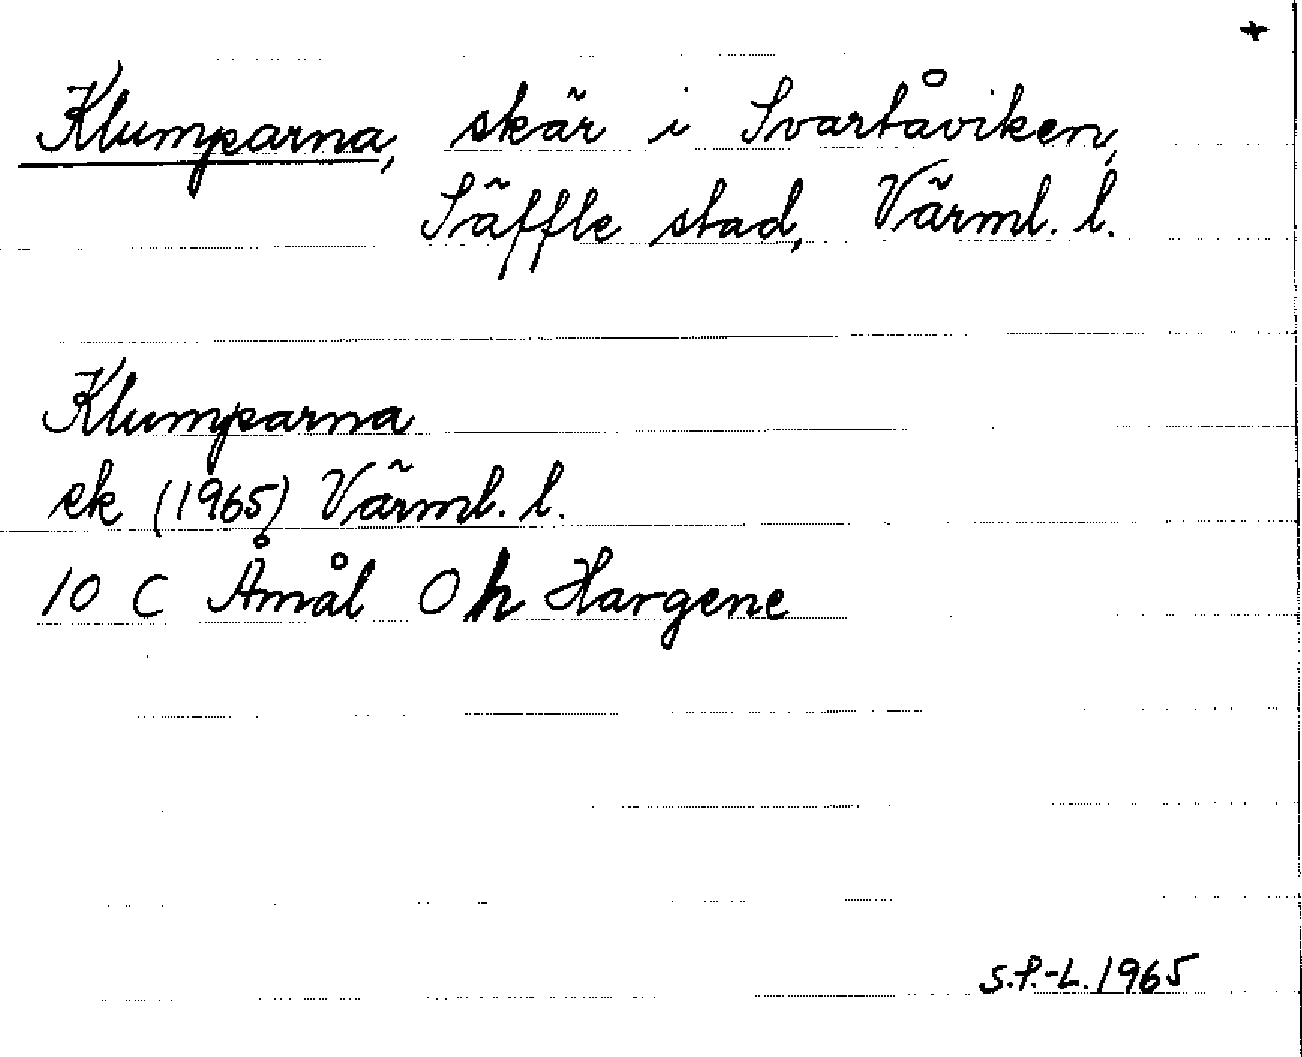 +
Klumparna, skär i Svartåviken,
Säffle stad, Värml. l.
Klumparna
ek (1965) Värml. l.
10 C Åmål Oh Hargene
S.P.-L. 1965